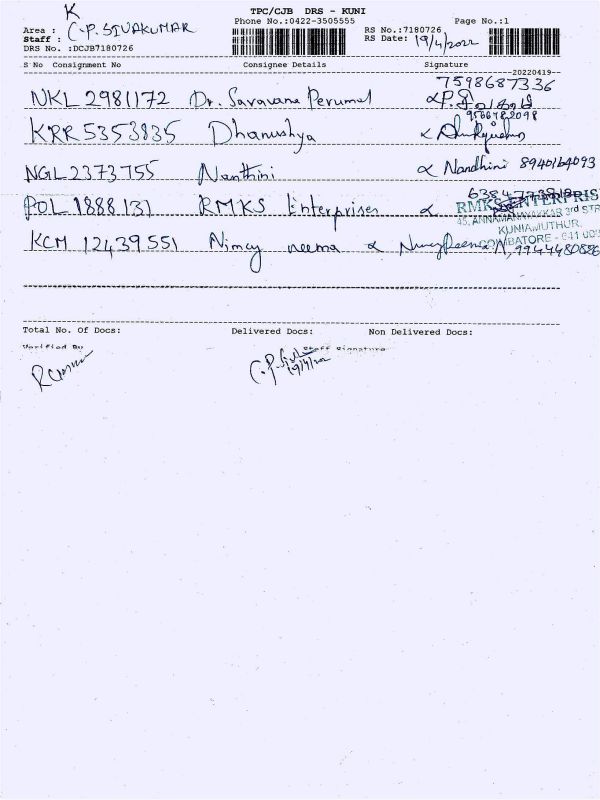 K
TPC/CJB DRS - KUNI
Area : Phone No.:0422-3505555 Page No.:1
Staff : C.P. SIVAKUMAR RS No.:7180726
DRS No. :DCJB7180726 RS Date: 19/4/2022
S No Consignment No Consignee Details Signature
20220419
7598687336
NKL 2981172 Dr. Saravana Perumal
9566782098
KRR 5353835 Dhanushya
NGL 2373755 Nanthini Nandhini 8940164093
POL 1888131 RMKS Enterprises
RMKS ENTERPRIS
45, ANNAMANAYAKKAR 3rd STR
KUNIAMUTHUR,
COIMBATORE - 641 008
KCM 12439551 Nimay neema 9944480886
Total No. Of Docs: Delivered Docs: Non Delivered Docs:
Verified By Staff Signature
19/4/22